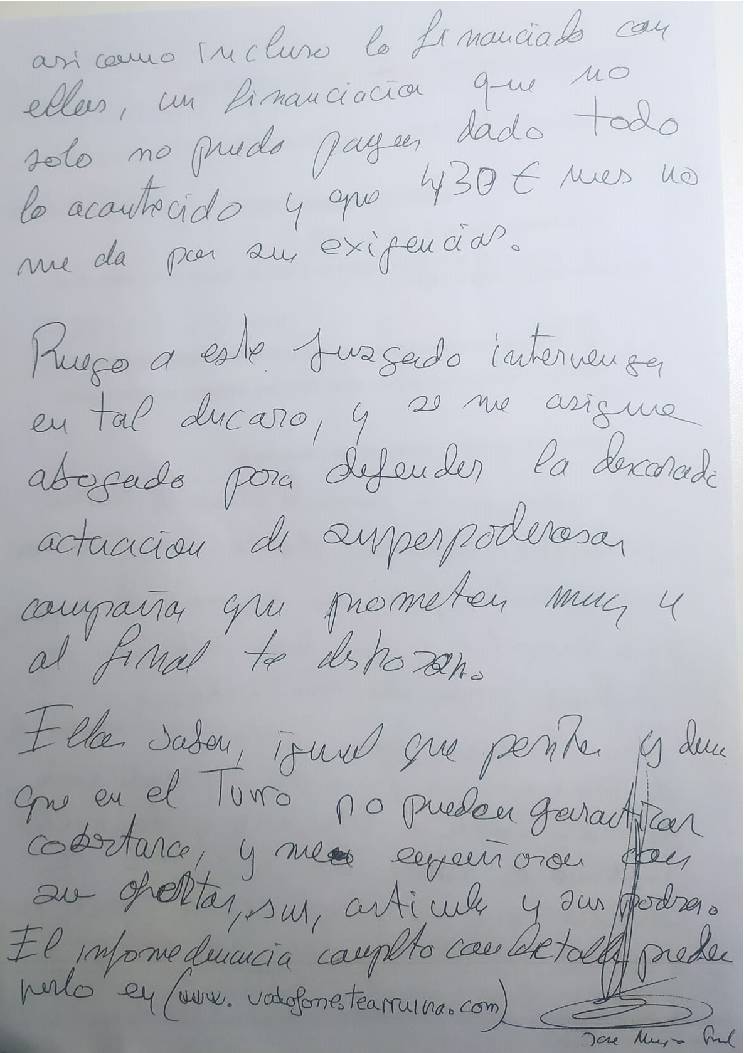 asi como incluso lo financiado con
ellos, un financiacion que no
solo no puedo pagar, dado todo
lo acontecido y que 430 € mes no
me da para sus exigencias.
Ruego a este Juzgado intervenga
en tal ducaso, y se me asigne
abogado para defender la descarada
actuacion de superpoderosas
compañias que prometen muy y
al final te deshozan.
Ellos saben, igual que perito y
que en el Turro no pueden garantizar
cobertura, y me engañaron con
su ofertas, sus, articule y sus
El informe denuncia completo con detalle puede
verlo en (www.vodofonestearruina.com)
Jose